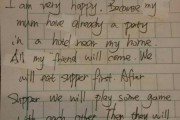 I am very happy, Because my
mum have already a party
in a hotel near my home
All my friend will come. We
will eat supper first. After
Supper we will play some game
with each other Then they will